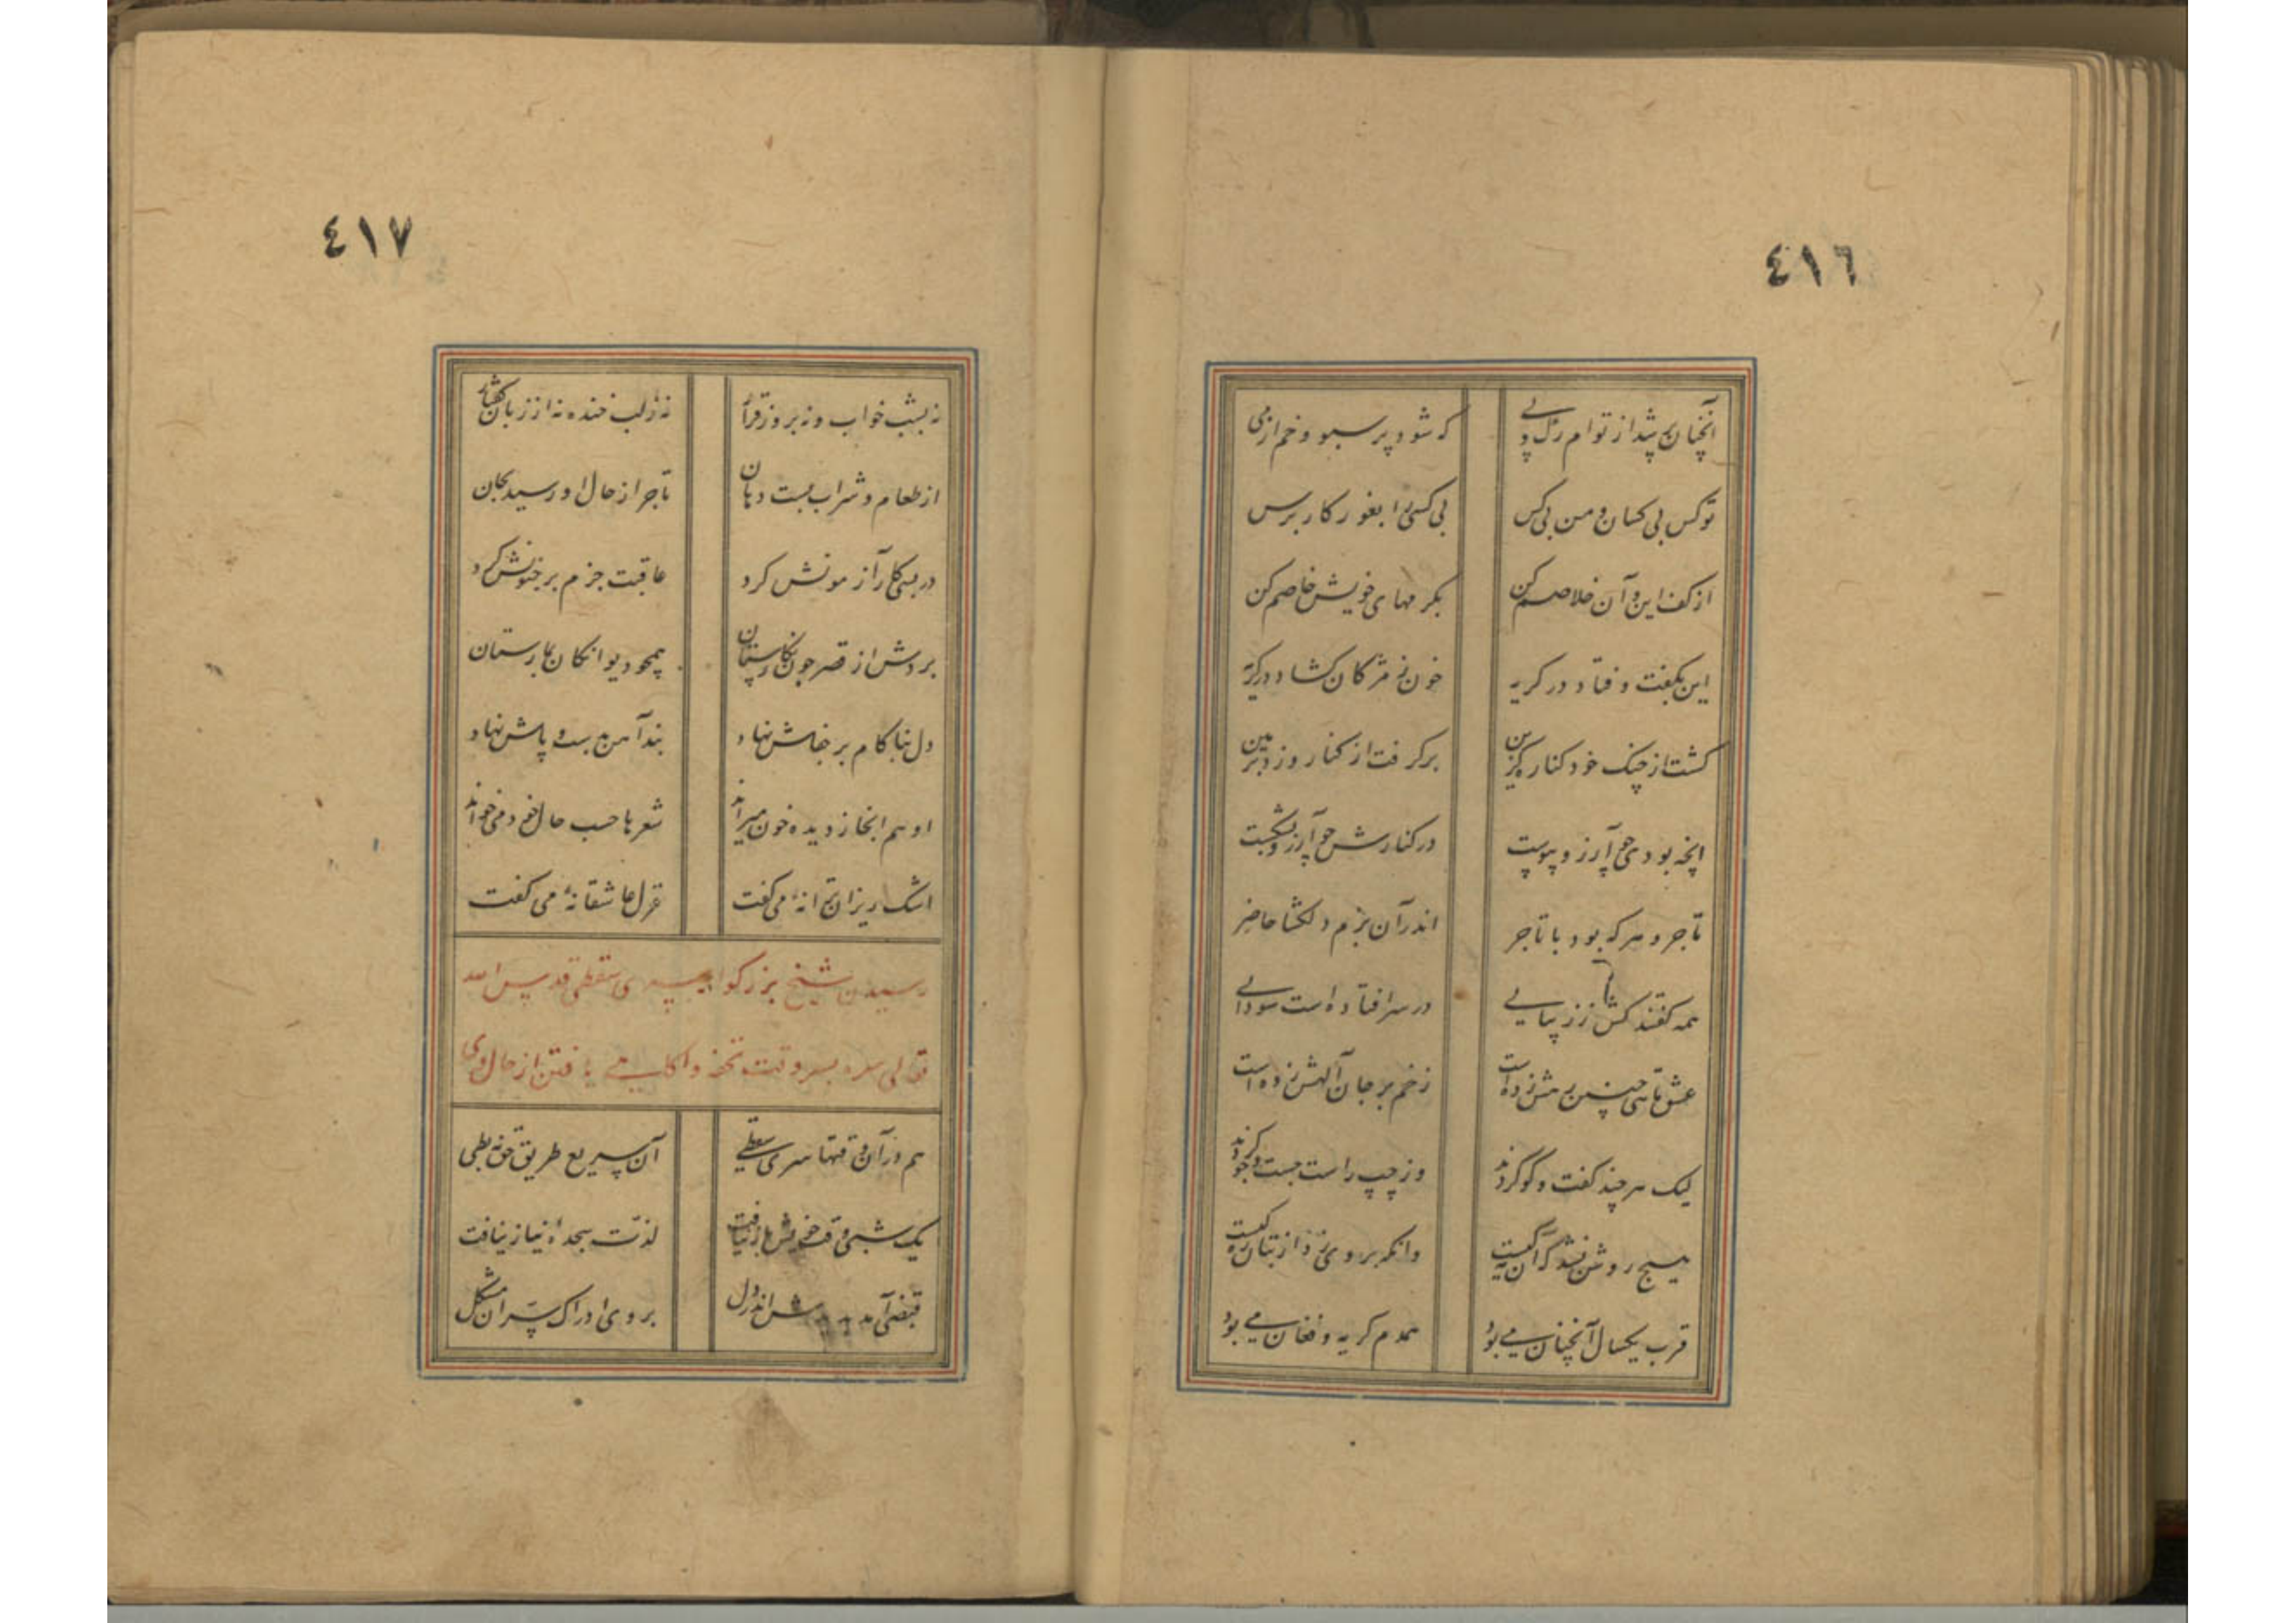 ٤١٦
آنچنان پر شد از توام رگ و پی
که شود پر سبو و خم از می
تو کس بی کسان و من بی کس
بی کسی را بغور کار برس
از کف این و آن خلاصم کن
بکرمهای خویش خاصم کن
این بگفت و فتاد در گریه
خون ز مژگان گشاد در گریه
گشت از چنگ خود کنار گزین
برگرفت از کنار و زد بزمین
آنچه بودی چو آرزو پیوست
در کنارش چو آرزو بشکست
تاجر و هر که بود با تاجر
اندر آن بزم دلگشا حاضر
همه گفتند کش ز زیبایی
در سر افتاده است سودایی
عشق تا
زخم بر جان آگهش زده است
لیک هر چند گفت و گو کردند
وز چپ و راست جست و جو کردند
هیچ روشن نشد که آن کیست
وانکه بر وی زد از بتان ره کیست
قرب یکسال آنچنان می بود
همدم گریه و فغان می بود
٤١٧
نه بشب خواب و نه بروز قرار
نه ز لب خنده نه از زبان گفتار
از طعام و شراب بست دهان
تاجر از حال او رسید بجان
در بسی کار آزمونش کرد
عاقبت جزم بر جنونش کرد
بردش از قصر چون نگارستان
همچو دیوانگان بمارستان
دل بناکام بر جفاش نهاد
بند آهن بدست و پاش نهاد
او هم آنجا ز دیده خون میراند
شعرها حسب حال خود می خواند
اشک ریزان ترانهٔ می گفت
غزل عاشقانهٔ می گفت
رسیدن شیخ بزرگوار سری سقطی قدس الله
تعالی سره بسر وقت تحفه و آگاهی یافتن از حال وی
هم در آن وقتها سری سقطی
آن سریع طریق حق نه بطی
یک شبی وقت خویش باز نیافت
لذت سجدهٔ نیاز نیافت
قبضی آمد پدیدش اندر دل
بر وی ادراک سرّ آن مشکل